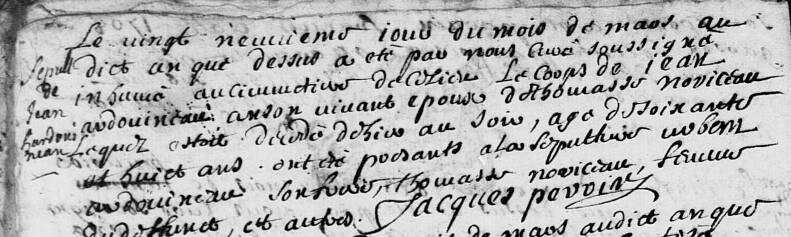 Le vingt neufieme iour du mois de mars au
sepul dict an que dessus a eté par nous curé soussigné
de inhumé au cimmetiere de celieu Le corps de jean
jean ardouineau en son vivant epoux de thomasse noviceau
hardouineau Lequel estoit decedé d'hier au soir, agé de soixante
et huict ans. ont eté presants a la sepulture robert
ardouineau son frere, thomasse noviceau, femme
du deffunct, et autres. Jacques pevoin
de mars audict an que